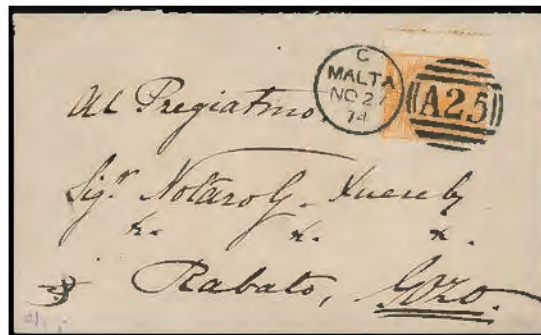 C
MALTA
NO 27
74
A25
Al Pregiatmo
Sigr. Notaro G. Xuereb
&. &. &.
Rabato, Gozo.